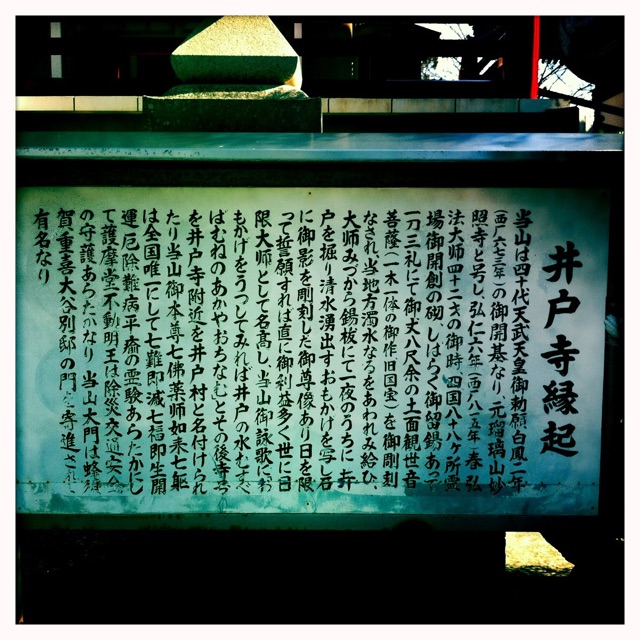 井戸寺縁起
当山は四十代天武天皇御勅願白鳳二年
(西六七三年)の御開基なり 元瑠璃山妙
照寺と号し、弘仁六年(西八一五年)春 弘
法大師四十二才の御時、四国八十八ヶ所霊
場御開創の砌、しばらく御留錫あつて
一刀三礼にて御丈八尺余の十一面観世音
菩薩(一木一体の御作旧国宝)を御彫刻
なされ当地方濁水なるをあわれみ給ひ、
大師みづから錫杖にて一夜のうちに 井
戸を掘り清水湧出すおもかげを写し石
に御影を彫刻した御尊像あり日を限
って誓願すれば直に御利益多く世に日
限大師として名高し、当山御詠歌にお
もかげをうつしてみれば井戸の水むすべ
ばむねのあかやおちなむとその後寺号
を井戸寺附近を井戸村と名付けられ
たり当山御本尊七佛薬師如来七躯
は全国唯一にして七難即滅七福即生開
運厄除難病平癒の霊験あらたかにし
て護摩堂不動明王は除災交通安全
の守護あらたかなり 当山大門は蜂須
賀重喜大谷別邸の門を寄進され
有名なり